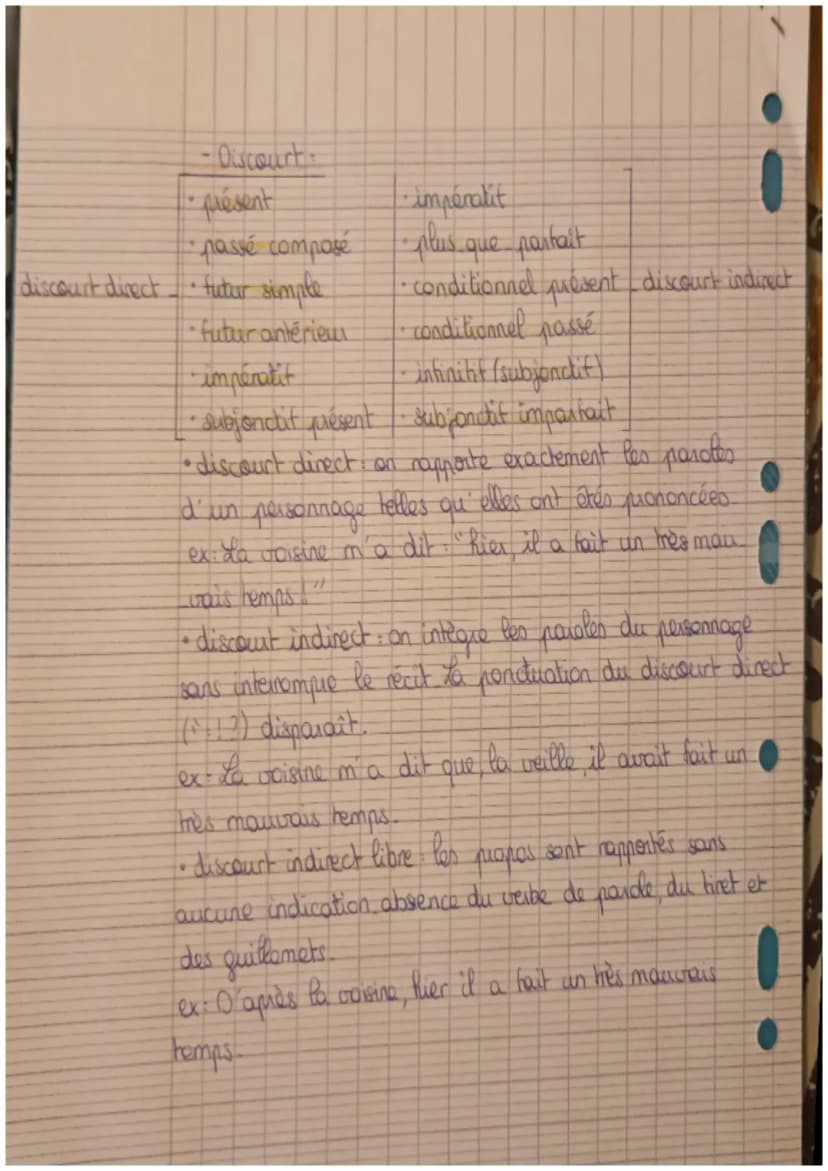 - Discourt :
· présent · impératit
· passé composé · plus que parfait
discourt direct · futur simple · conditionnel présent discourt indirect
· futur antérieur · conditionnel passé
· impératit · infinitif (subjonctif)
· subjonctit présent · subjonctif imparfait
• discourt direct : on rapporte exactement les paroles
d'un personnage telles qu'elles ont étés prononcées
ex : La voisine m'a dit : "hier, il a fait un très mau
vais temps !"
• discourt indirect : on intègre les paroles du personnage
sans interrompre le récit La ponctuation du discourt direct
disparaît.
ex : La voisine m'a dit que, la veille, il avait fait un
très mauvais temps.
• discourt indirect libre : les propos sont rapportés sans
aucune indication. absence du verbe de parole, du tiret et
des guillemets.
ex : D'après la voisine, hier il a fait un très mauvais
temps.